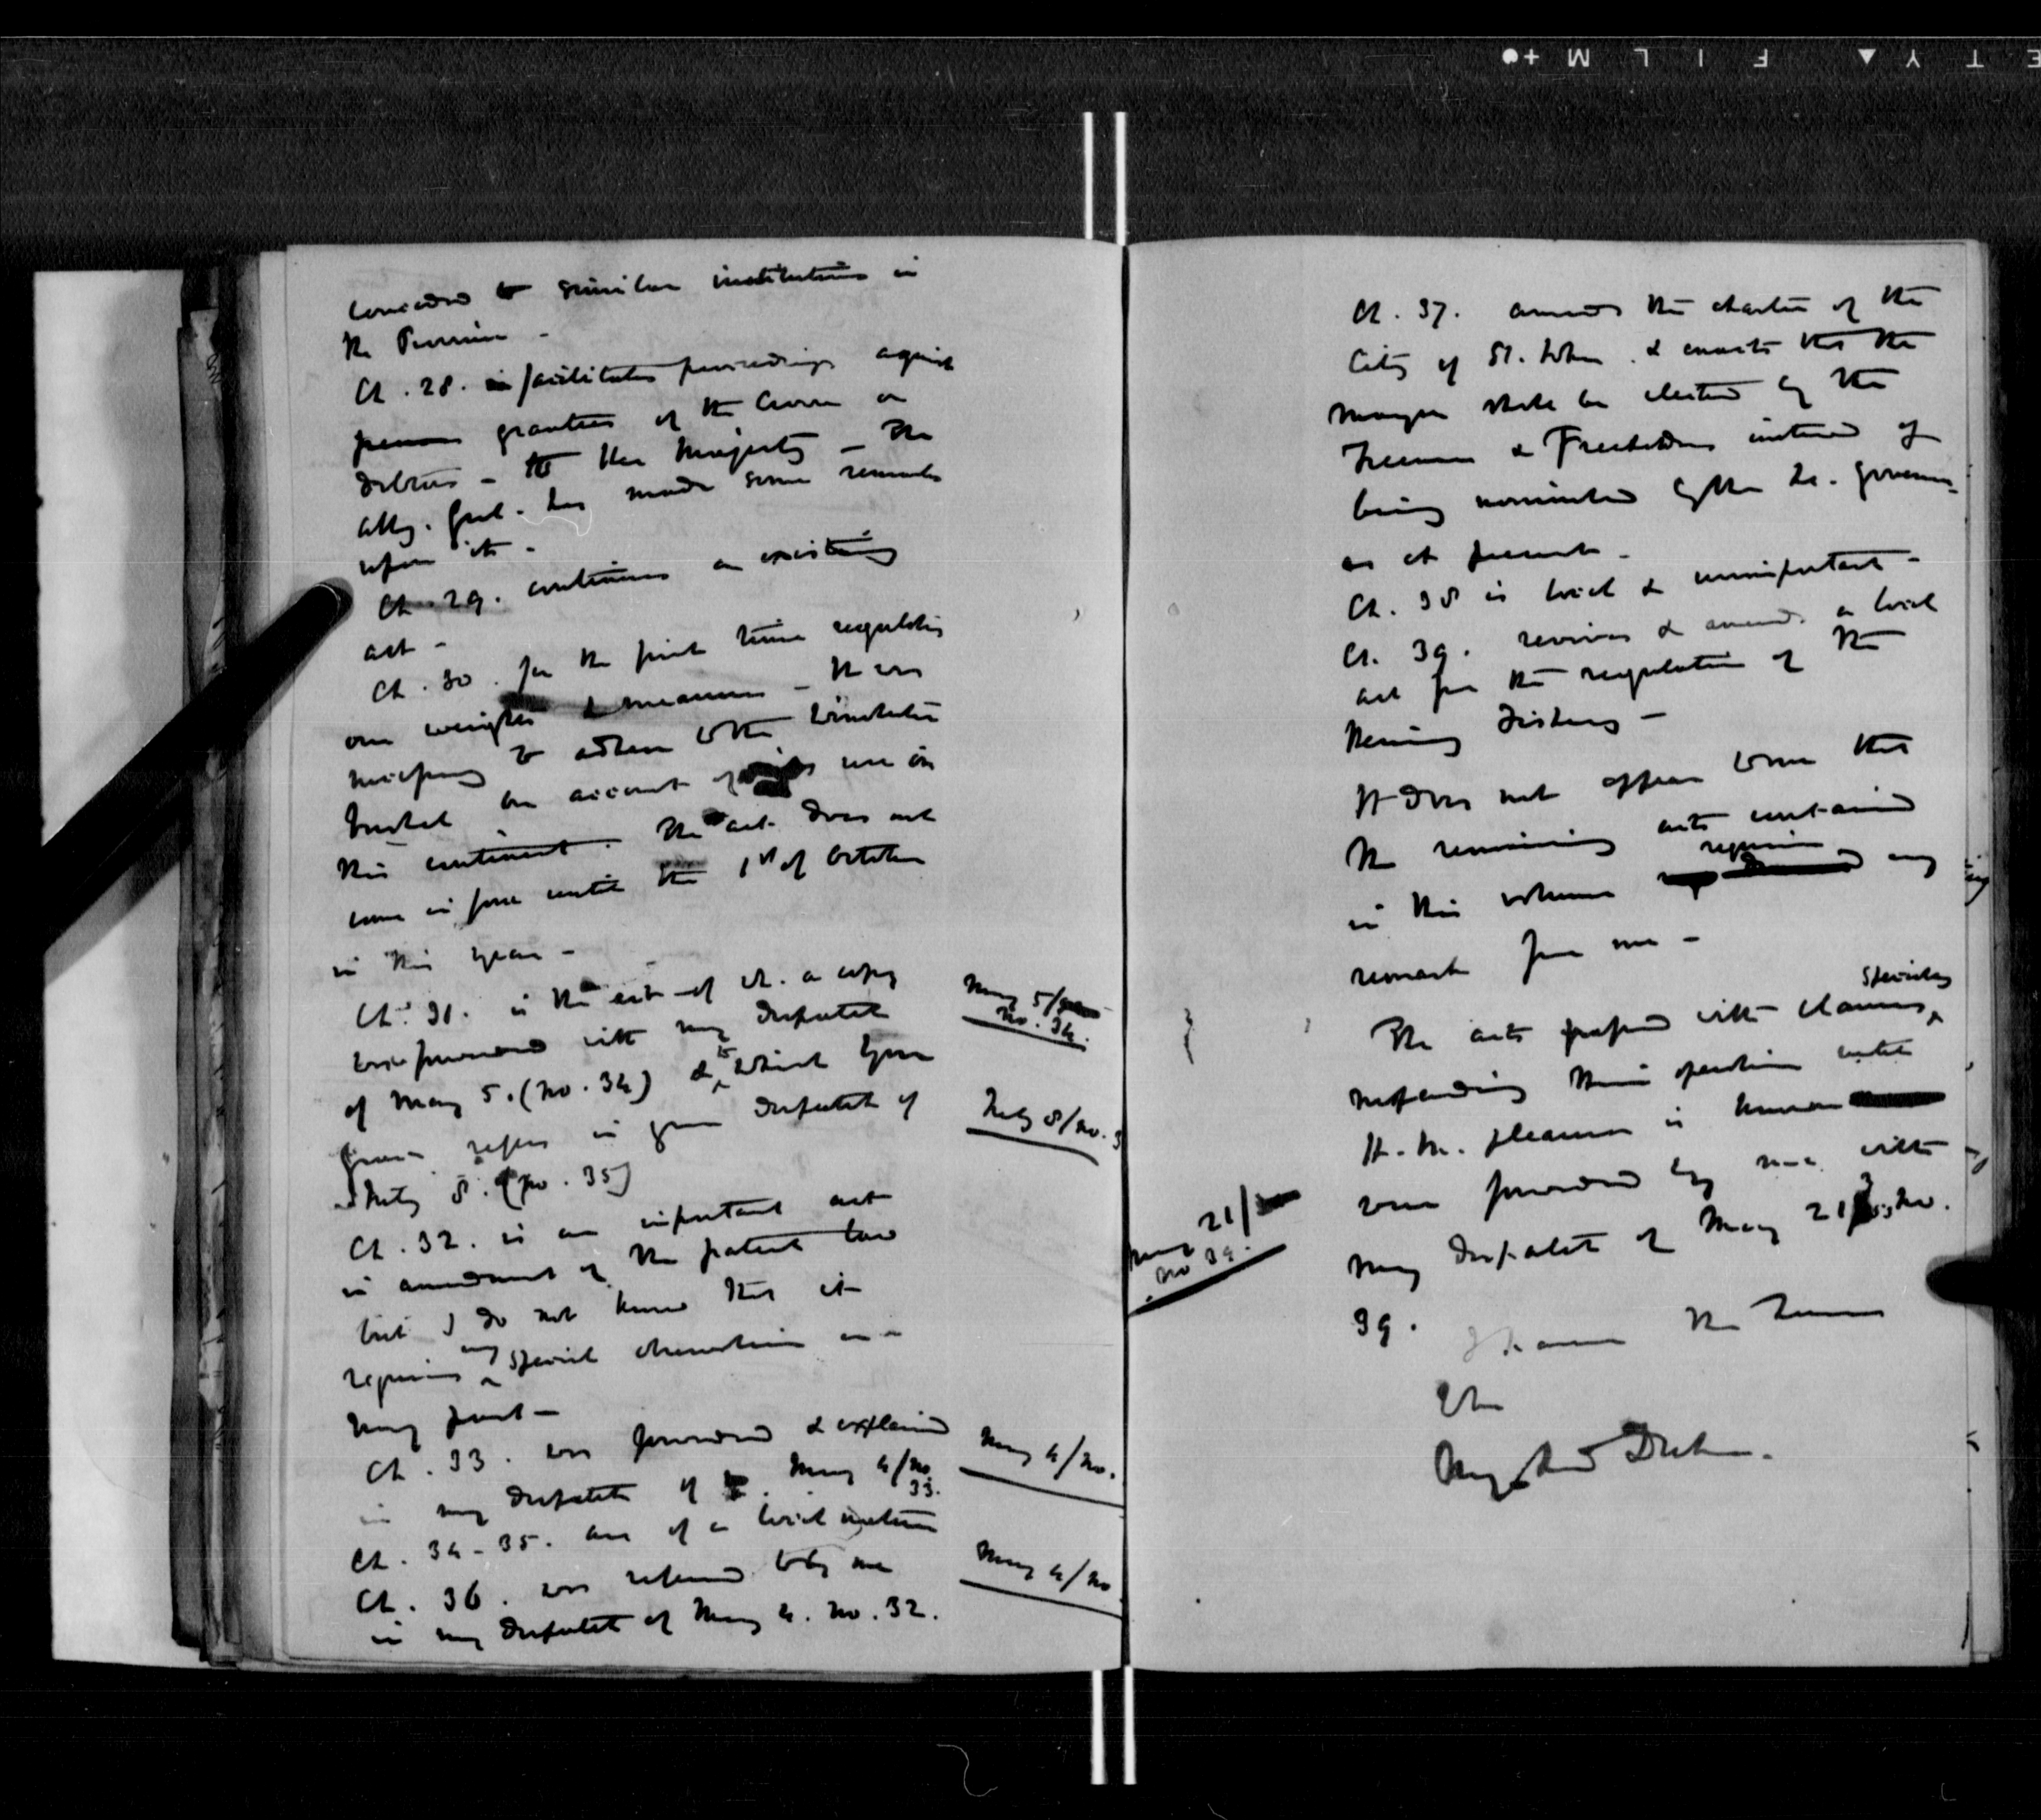 conceded to similar institutions in
the Province -
Ch. 28. facilitates proceedings against
persons grantees of the Crown or
debtors - to Her Majesty - The
Atty. Genl. has made some remarks
upon it -
Ch. 29. continues an existing
act -
Ch. 30. for the first time regulates
our weights & measures - It was
necessary to adhere to the Winchester
bushel on account of its use on
this continent. The act does not
come in force until the 1st of October
in this year -
Ch. 31. is the act of wh. a copy
was forwarded with my Despatch
of May 5. (No. 34) & to which Your
Grace refers in your Despatch of
July 8. (No. 35)
Ch. 32. is an important act
in amendment of the patent law
but I do not know that it
requires any special observation on
my part -
Ch. 33. was forwarded & explained
in my Despatch of May 4/No.
33.
Ch. 34-35. are of a local nature
Ch. 36. was referred to by me
in my Despatch of May 4. No. 32.
May 5/
No. 34.
July 8/No. 3
May 4/No.
May 4/No
Ch. 37. amends the charter of the
City of St. John & enacts that the
Mayor shall be elected by the
Freemen & Freeholders instead of
being nominated by the Lt. Governor
as at present -
Ch. 38 is local & unimportant -
Ch. 39. revives & amends a local
act for the regulation of the
Herring Fishery -
It does not appear to me that
the remaining acts contained
in this volume require any
remark from me -
The acts passed with clauses specially
suspending their operation until
H. M. pleasure is known
were forwarded by me with
my Despatch of May 21 No.
39.
May 21/
No 39.
I have the honor
&c